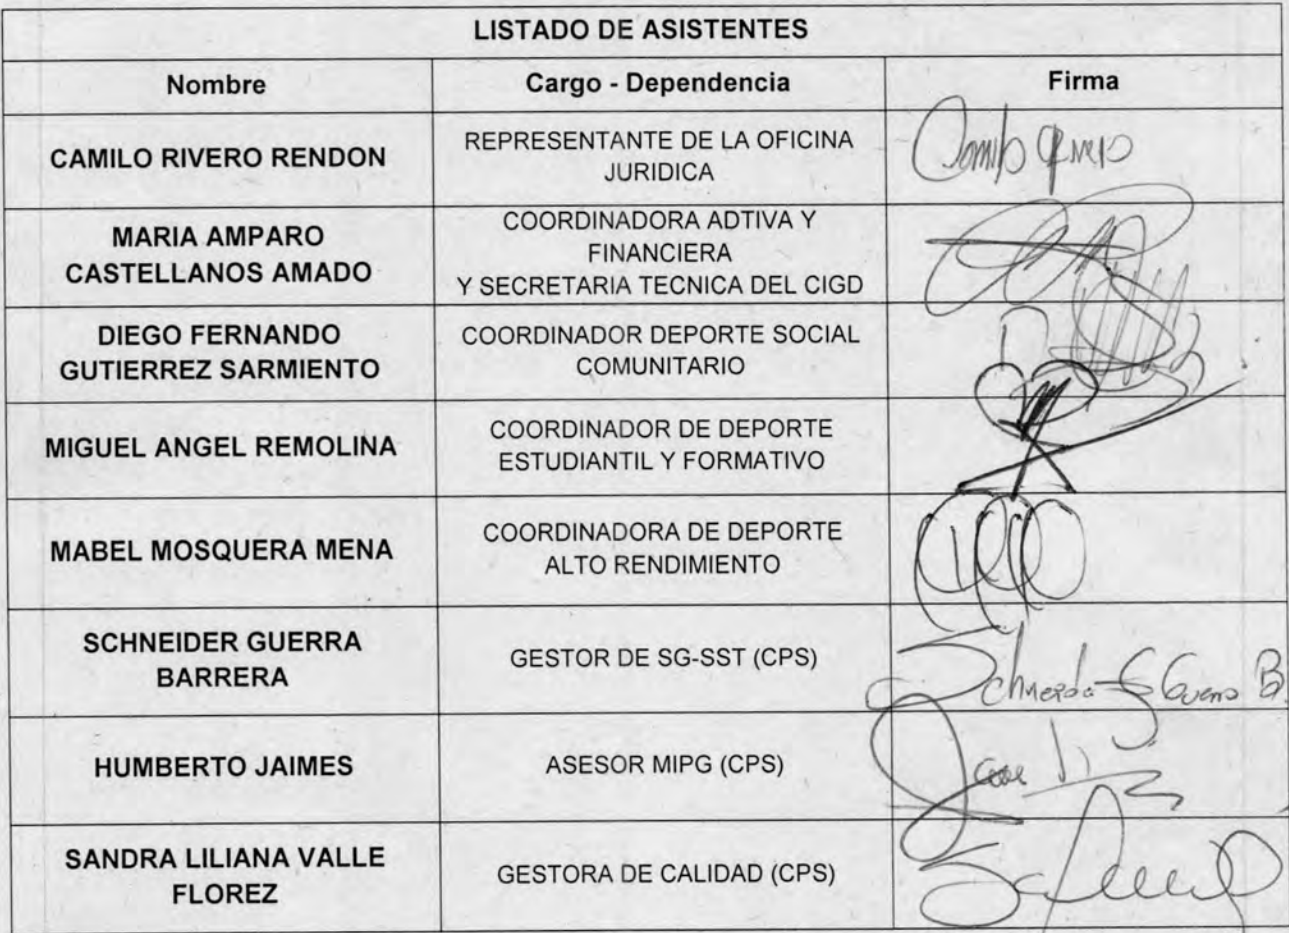 LISTADO DE ASISTENTES
Nombre Cargo - Dependencia Firma
CAMILO RIVERO RENDON
REPRESENTANTE DE LA OFICINA
JURIDICA
Camilo Rivero
MARIA AMPARO
CASTELLANOS AMADO
COORDINADORA ADTIVA Y
FINANCIERA
Y SECRETARIA TECNICA DEL CIGD
DIEGO FERNANDO
GUTIERREZ SARMIENTO
COORDINADOR DEPORTE SOCIAL
COMUNITARIO
MIGUEL ANGEL REMOLINA
COORDINADOR DE DEPORTE
ESTUDIANTIL Y FORMATIVO
MABEL MOSQUERA MENA
COORDINADORA DE DEPORTE
ALTO RENDIMIENTO
SCHNEIDER GUERRA
BARRERA
GESTOR DE SG-SST (CPS)
HUMBERTO JAIMES
ASESOR MIPG (CPS)
SANDRA LILIANA VALLE
FLOREZ
GESTORA DE CALIDAD (CPS)